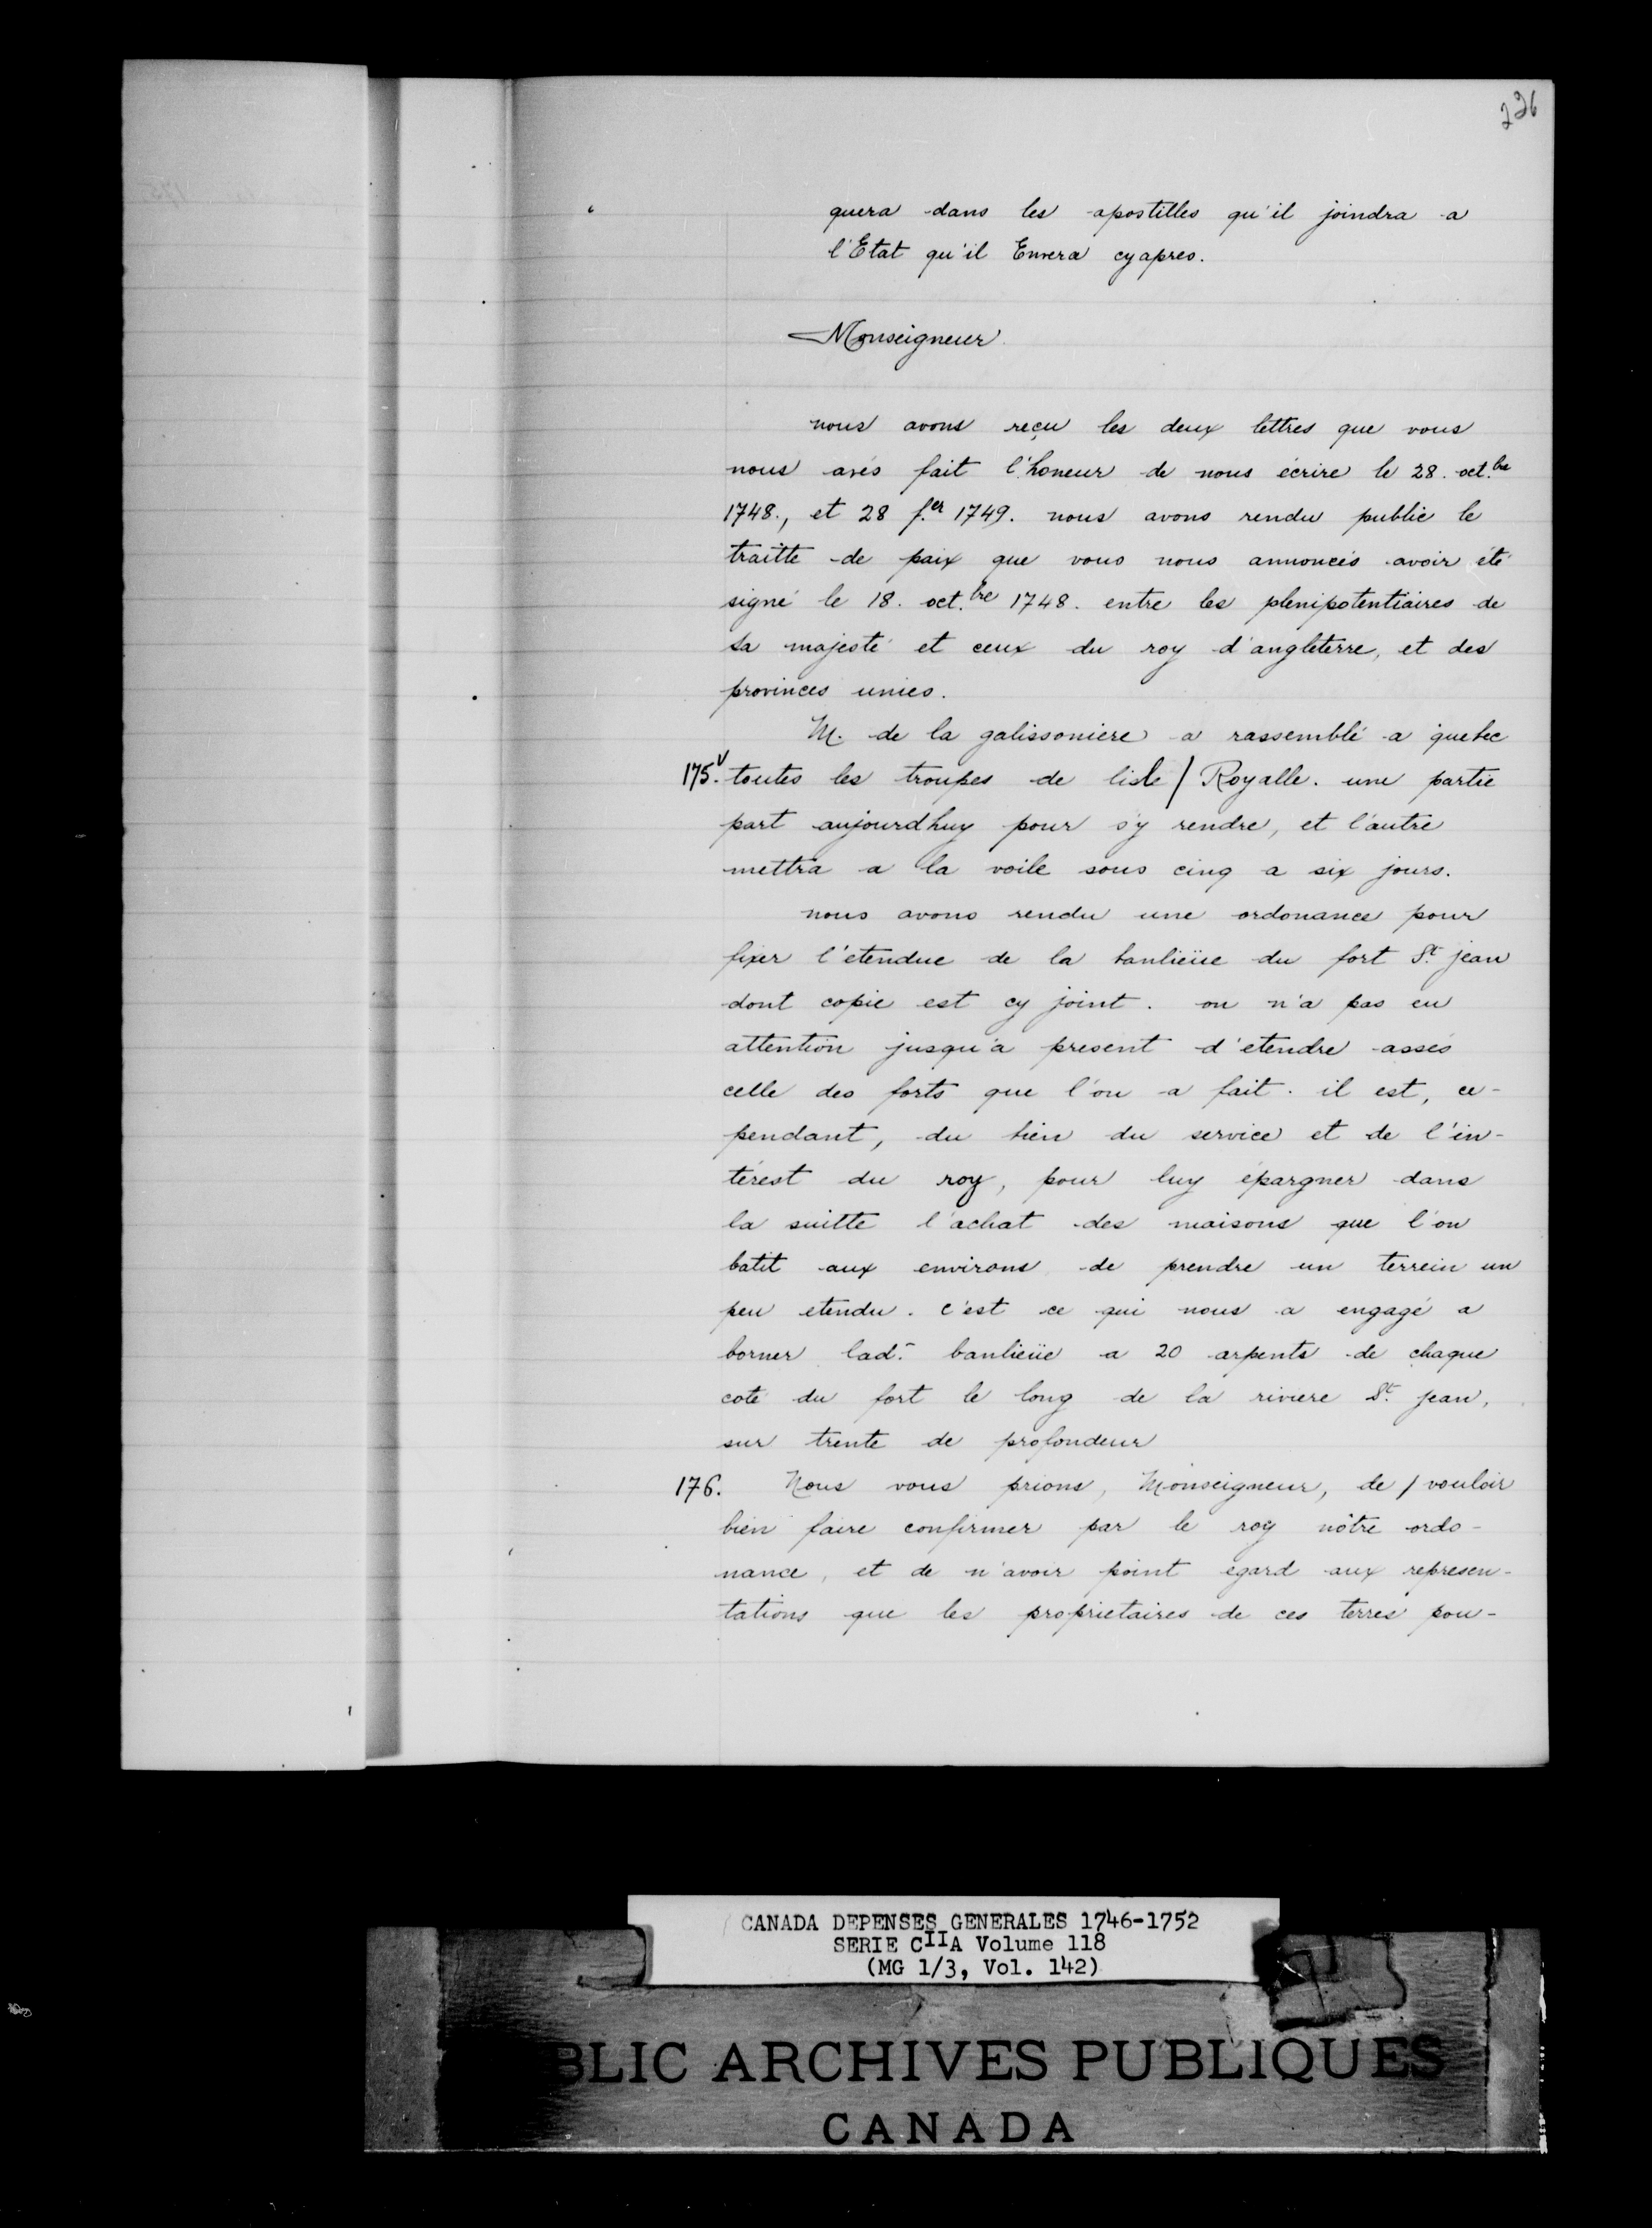 226
quera dans les apostilles qu'il joindra a
l'Etat qu'il Envera cyapres.
Monseigneur
nous avons reçu les deux lettres que vous
nous avés fait l'honeur de nous écrire le 28. oct.bre
1748., et 28 f.er 1749. nous avons rendu public le
traitte de paix que vous nous annoncés avoir été
signé le 18. oct.bre 1748. entre les plenipotentiaires de
sa majesté et ceux du roy d'angleterre, et des
provinces unies.
M. de la galissoniere a rassemblé a quebec
175.v toutes les troupes de lisle / Royalle. une partie
part aujourd'huy pour s'y rendre, et l'autre
mettra a la voile sous cinq a six jours.
nous avons rendu une ordonance pour
fixer l'etendue de la banlieüe du fort St. jean
dont copie est cy joint. on n'a pas eu
attention jusqu'a present d'etendre assés
celle des forts que l'on a fait. il est, ce-
pendant, du bien du service et de l'in-
térest du roy, pour luy épargner dans
la suitte l'achat des maisons que l'on
batit aux environs de prendre un terrein un
peu etendu. c'est ce qui nous a engagé a
borner lad.- banlieüe a 20 arpents de chaque
coté du fort le long de la riviere St. jean,
sur trente de profondeur
176. Nous vous prions, Monseigneur, de / vouloir
bien faire confirmer par le roy nôtre ordo-
nance, et de n'avoir point egard aux represen-
tations que les proprietaires de ces terres pou-
CANADA DEPENSES GENERALES 1746-1752
SERIE CIIA Volume 118
(MG 1/3, Vol. 142)
BLIC ARCHIVES PUBLIQUES
CANADA